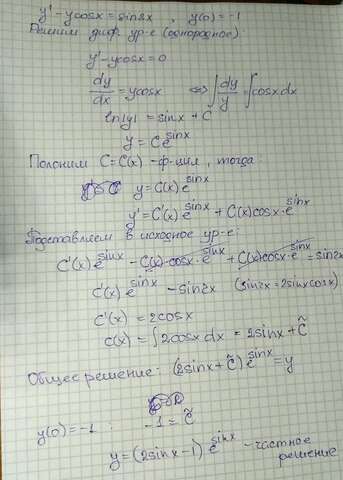 y' - ycosx = sin2x , y(0) = -1
Решим диф. ур-е (однородное):
y' - ycosx = 0
dy/dx = ycosx ⇔ ∫dy/y = ∫cosxdx
ln|y| = sinx + C̃
y = Ce^sinx
Положим C = C(x) - ф-ция, тогда
y = C(x)e^sinx
y' = C'(x)e^sinx + C(x)cosx·e^sinx
Подставляем в исходное ур-е:
C'(x)e^sinx - C(x)·cosx·e^sinx + C(x)cosx·e^sinx = sin2x
C'(x)e^sinx - sin2x (sin2x = 2sinxcosx)
C'(x) = 2cosx
C(x) = ∫2cosxdx = 2sinx + C̃
Общее решение: (2sinx + C̃)e^sinx = y
y(0) = -1 : -1 = C̃
y = (2sinx - 1)e^sinx - частное
решение